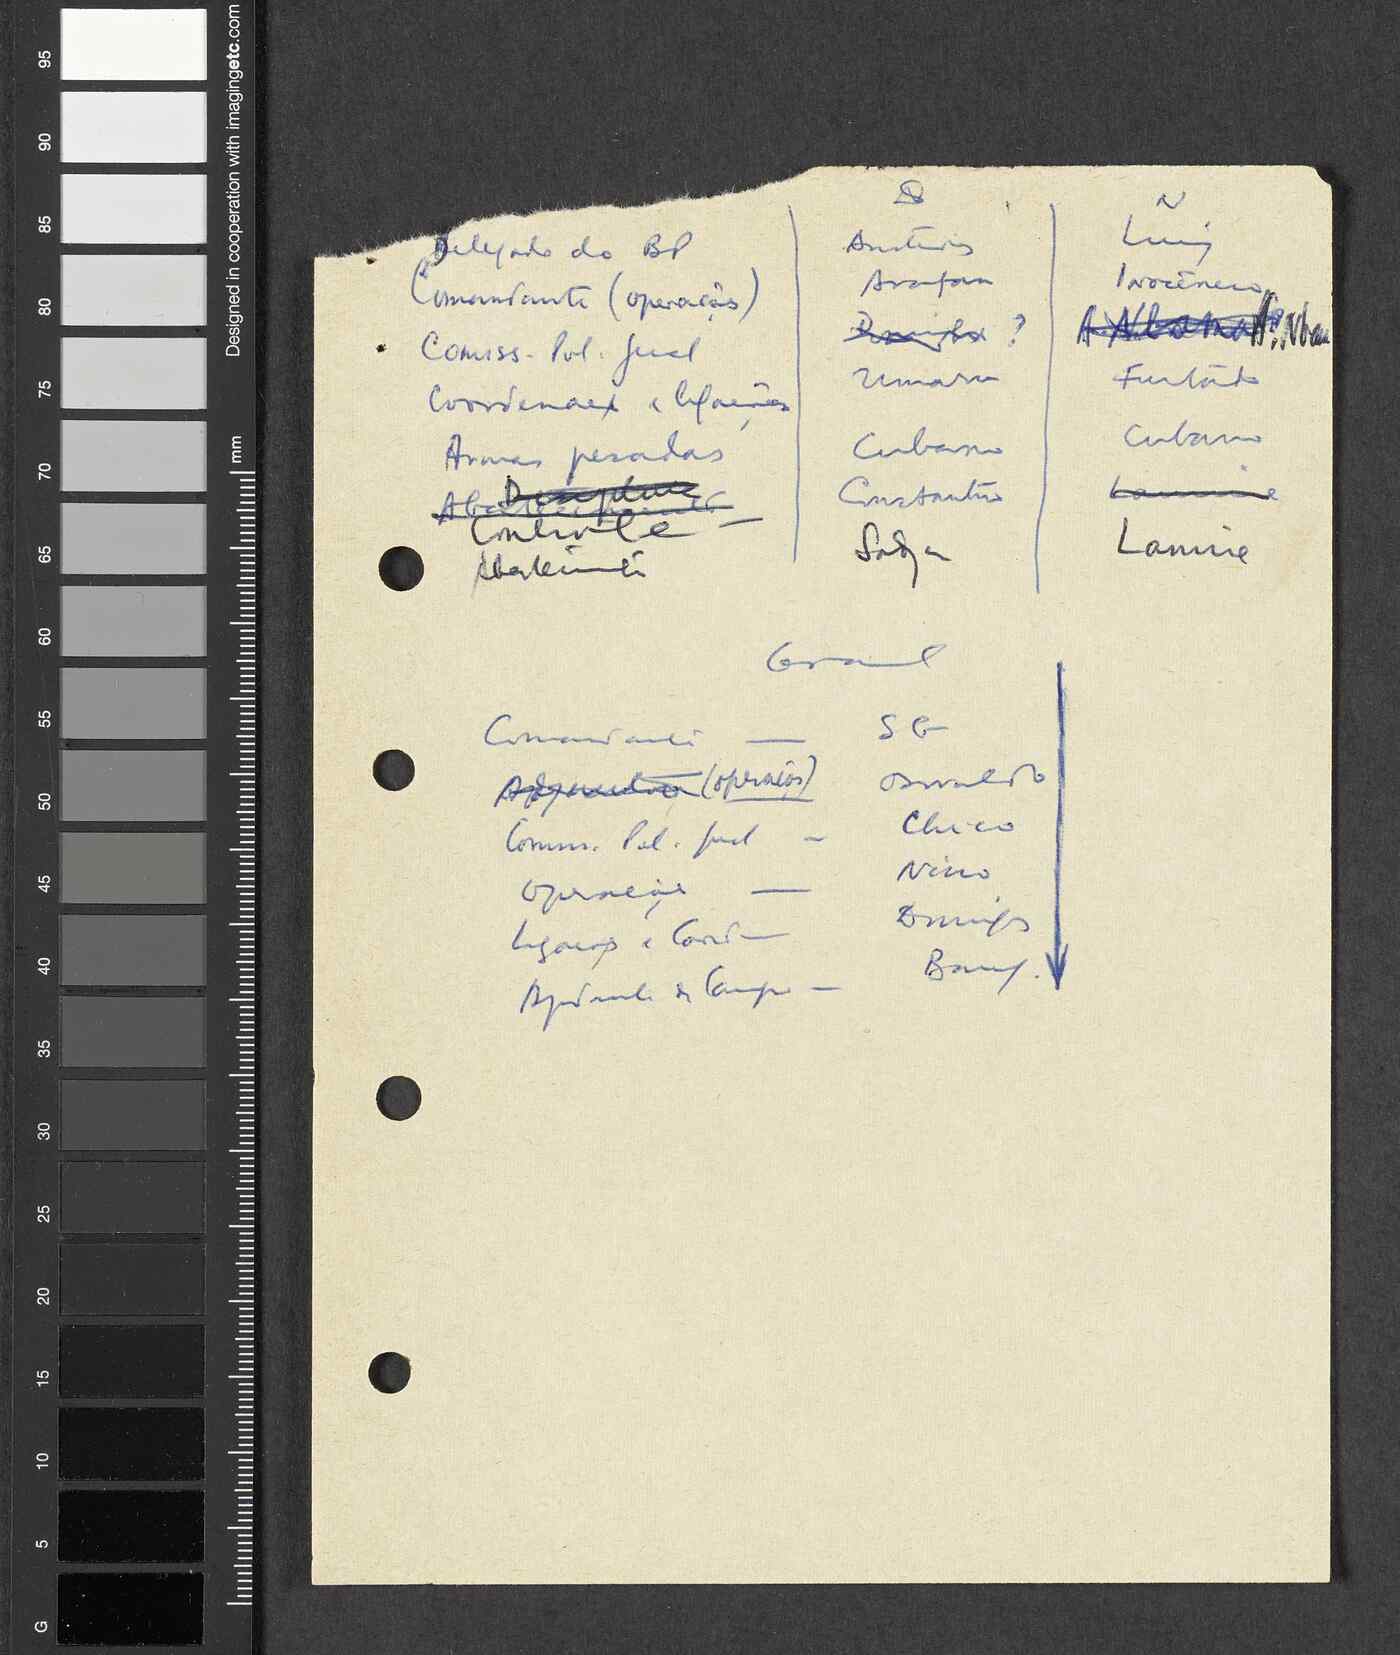 S N
Delegado do BP Aristides Luiz
Comandante (operações) Arafan Inocêncio
Comiss. Pol. Geral Domingos ? A. N'Bana
Coordenação e ligações Umaru Furtado
Armas pesadas Cubano Cubano
Abastecimento Disciplina Constantino Lamine
Controle —
Abastecimento Lamine
Geral
Comandante — SG
Adjunto (operações) Osvaldo
Comiss. Pol. Geral – Chico
Operações — Nino
Ligações e Coord— Domingos
de Campo —
Designed in cooperation with imagingetc.com
mm
95
90
85
80
75
70
65
60
55
50
45
40
35
30
25
20
15
10
5
G